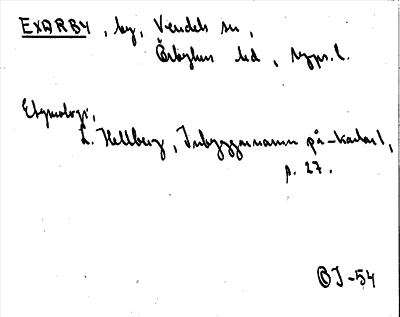 EXARBY, by, Vendels sn,
Örbyhus hd, Upps. l.
Etymologi,
L. Hellberg, Inbyggarnamn på -karlar I,
p. 27.
OJ-54